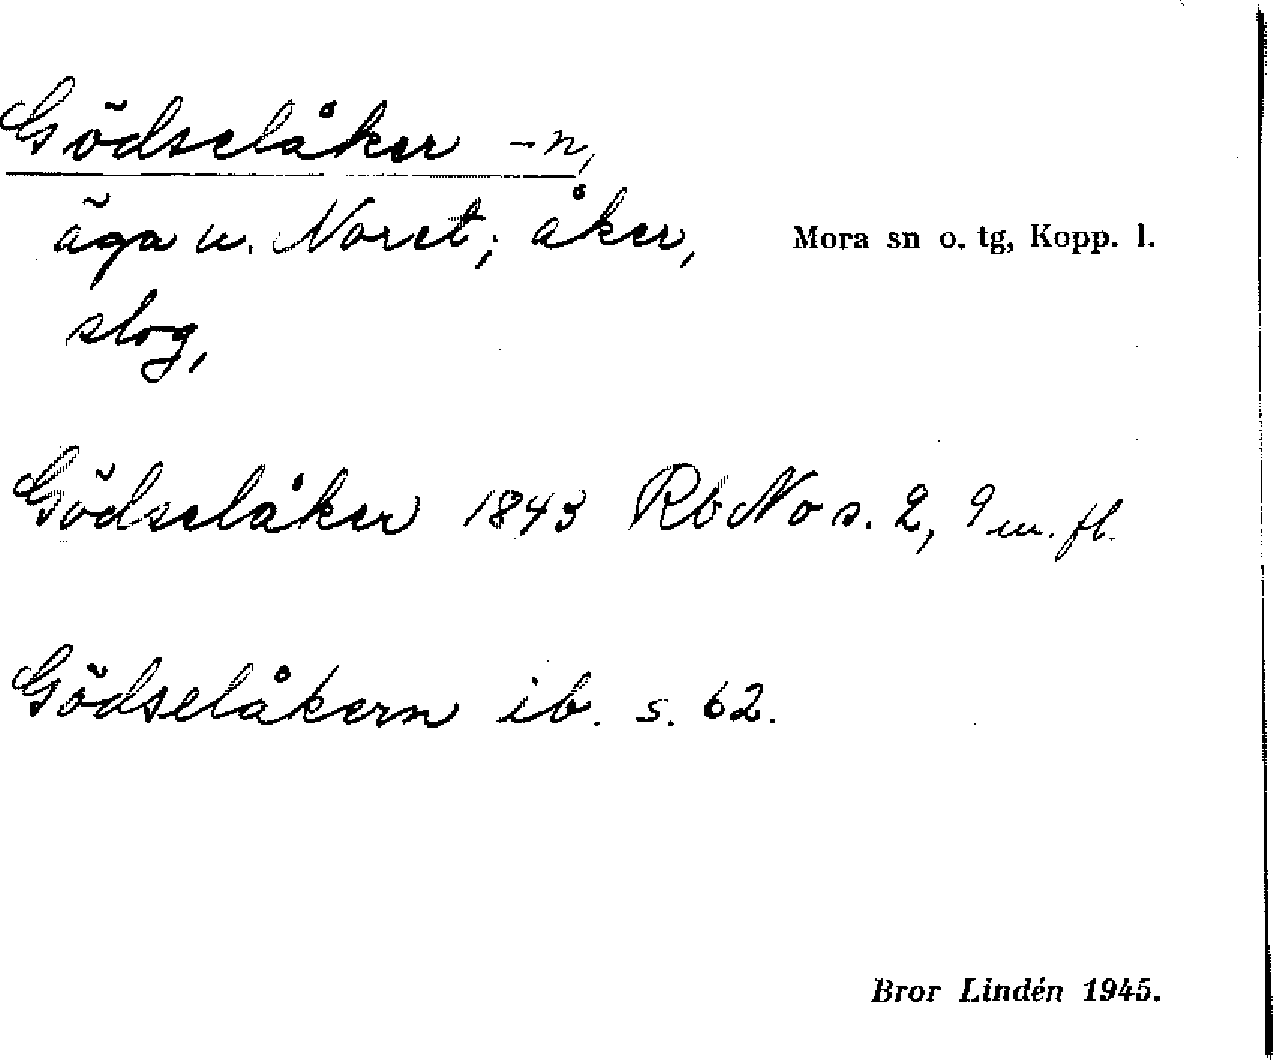 Gödselåker -n,
äga u. Noret; åker,
Mora sn o. tg, Kopp. l.
slog,
Gödselåker 1843 RbNo s. 2, 9 m. fl.
Gödselåkern ib. s. 62.
Bror Lindén 1945.